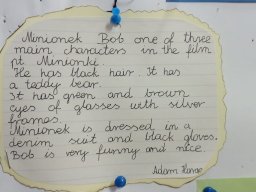 Minionek Bob one of three
main characters in the film
pt. Minionki.
He has black hair. It has
a teddy bear.
It has green and brown
eyes of glasses with silver
frames.
Minionek is dressed in a
denim suit and black gloves.
Bob is very funny and nice.
Adam